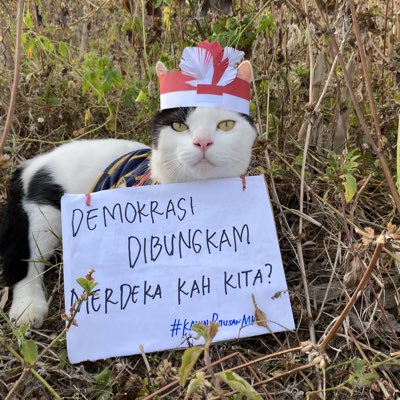 DEMOKRASI
DIBUNGKAM
MERDEKA KAH KITA?
#KAWALPUTUSANMK